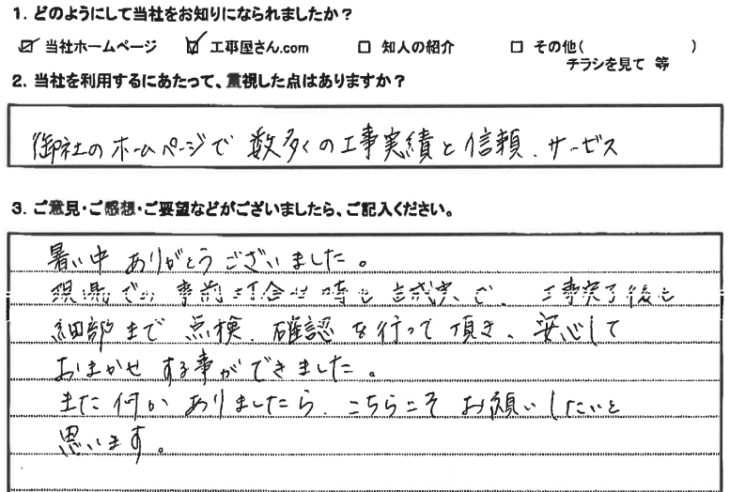 1. どのようにして当社をお知りになられましたか？
☑ 当社ホームページ ☑ 工事屋さん.com □ 知人の紹介 □ その他( )
チラシを見て 等
2. 当社を利用するにあたって、重視した点はありますか？
御社のホームページで 数多くの工事実績と信頼、サービス
3. ご意見・ご感想・ご要望などがございましたら、ご記入ください。
暑い中 ありがとうございました。
現場での 事前打合せ時も 誠実で、工事完了後も
細部まで 点検、確認を行って頂き、安心して
おまかせする事ができました。
また何かありましたら、こちらこそ お願いしたいと
思います。